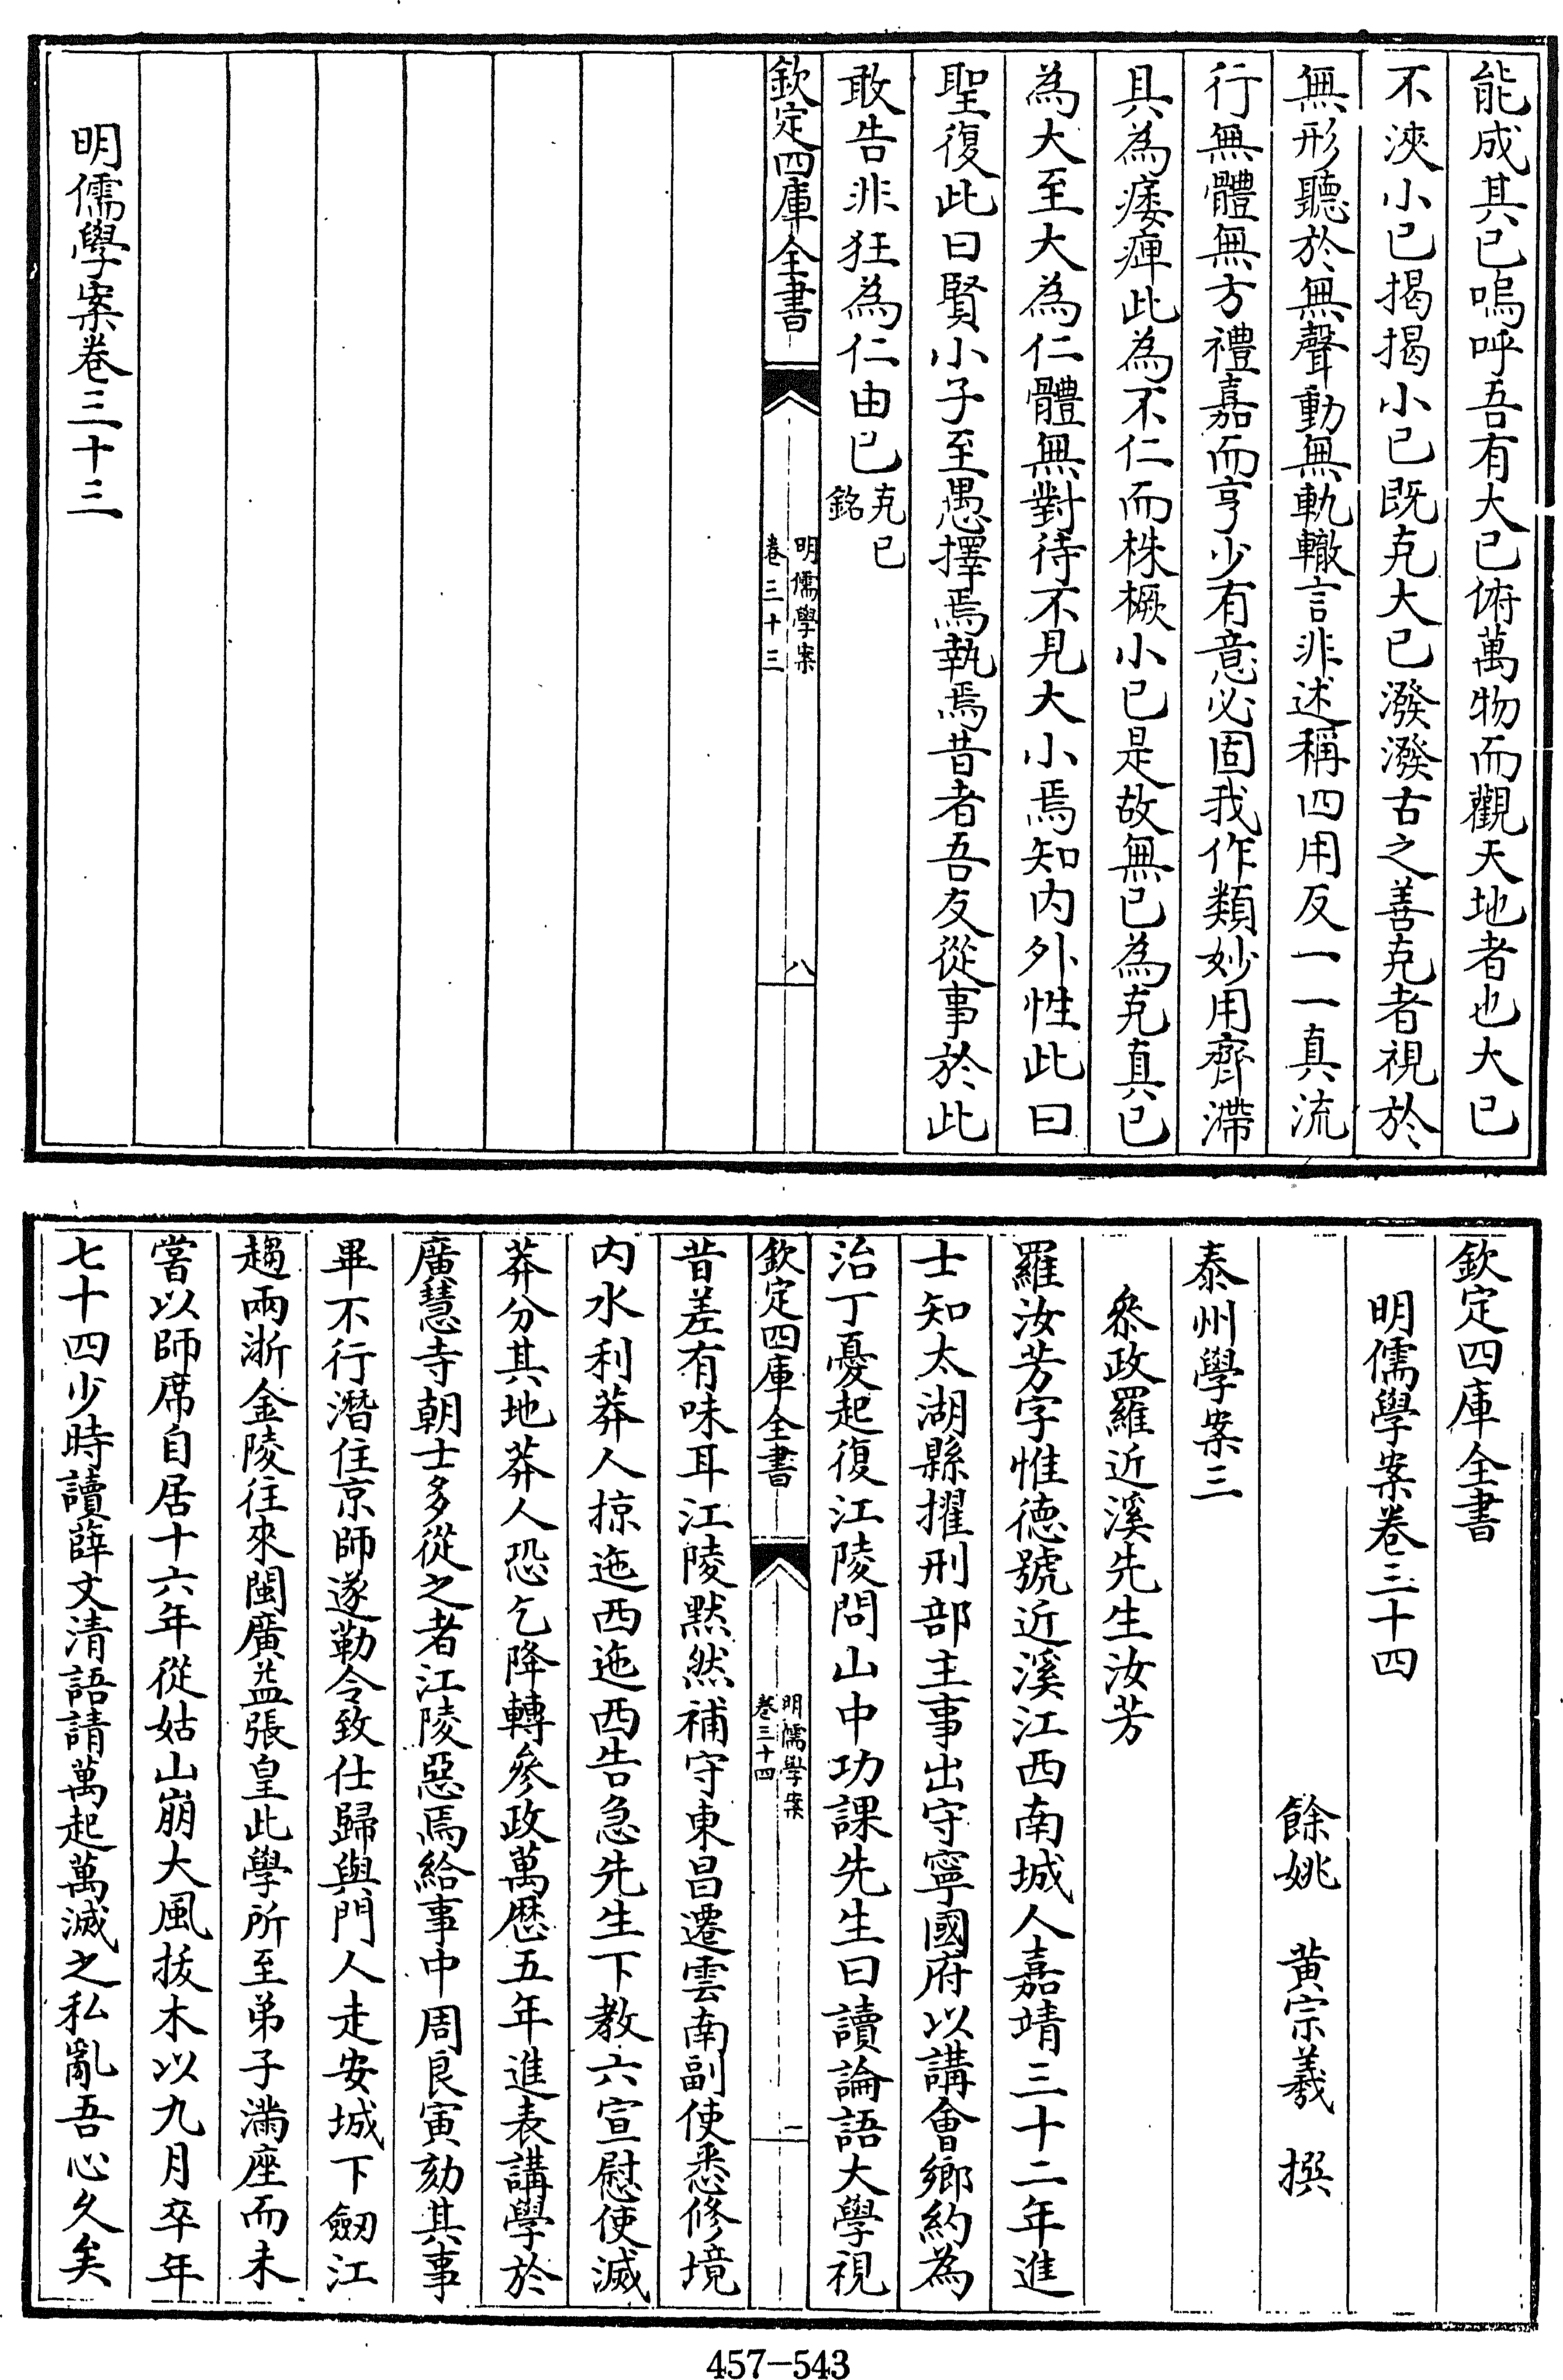 能成其已嗚呼吾有大已俯萬物而觀天地者也大已
不浹小已揭揭小已既克大已潑潑古之善克者視於
無形聽於無聲動無軌轍言非述稱四用反一一真流
行無體無方禮嘉而亨少有意必固我作類妙用齊滯
具為痿痺此為不仁而株橛小已是故無已為克真已
為大至大為仁體無對待不見大小焉知内外性此曰
聖復此曰賢小子至愚擇焉執焉昔者吾友從事於此
敢告非狂為仁由已克已
銘
欽定四庫全書
明儒學案
卷三十三
八
明儒學案卷三十三
欽定四庫全書
明儒學案卷三十四
餘姚 黄宗羲 撰
泰州學案三
叅政羅近溪先生汝芳
羅汝芳字惟德號近溪江西南城人嘉靖三十二年進
士知太湖縣擢刑部主事出守寧國府以講會鄉約為
治丁憂起復江陵問山中功課先生曰讀論語大學視
欽定四庫全書
明儒學案
卷三十四
一
昔差有味耳江陵黙然補守東昌遷雲南副使悉修境
内水利莽人掠迤西迤西告急先生下教六宣慰使滅
莽分其地莽人恐乞降轉參政萬厯五年進表講學於
廣慧寺朝士多從之者江陵惡焉給事中周良寅劾其事
畢不行潛住京師遂勒令致仕歸與門人走安城下劒江
趨兩浙金陵往來閩廣益張皇此學所至弟子滿座而未
嘗以師席自居十六年從姑山崩大風拔木以九月卒年
七十四少時讀薛文清語請萬起萬滅之私亂吾心久矣
457-543